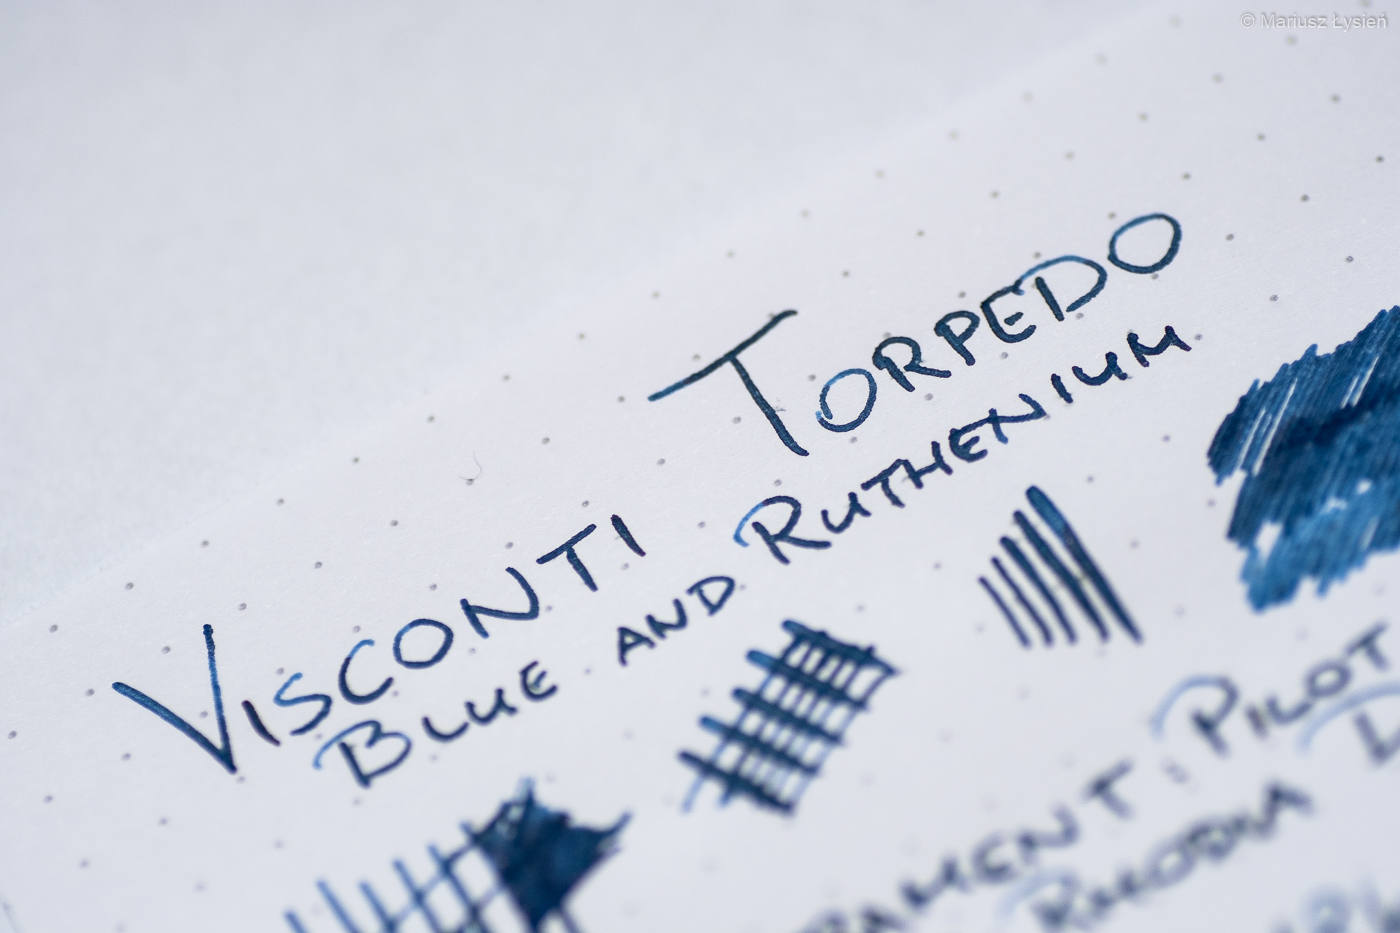 © Mariusz Łysień
VISCONTI TORPEDO
BLUE AND RUTHENIUM
: PILOT
RHODIA